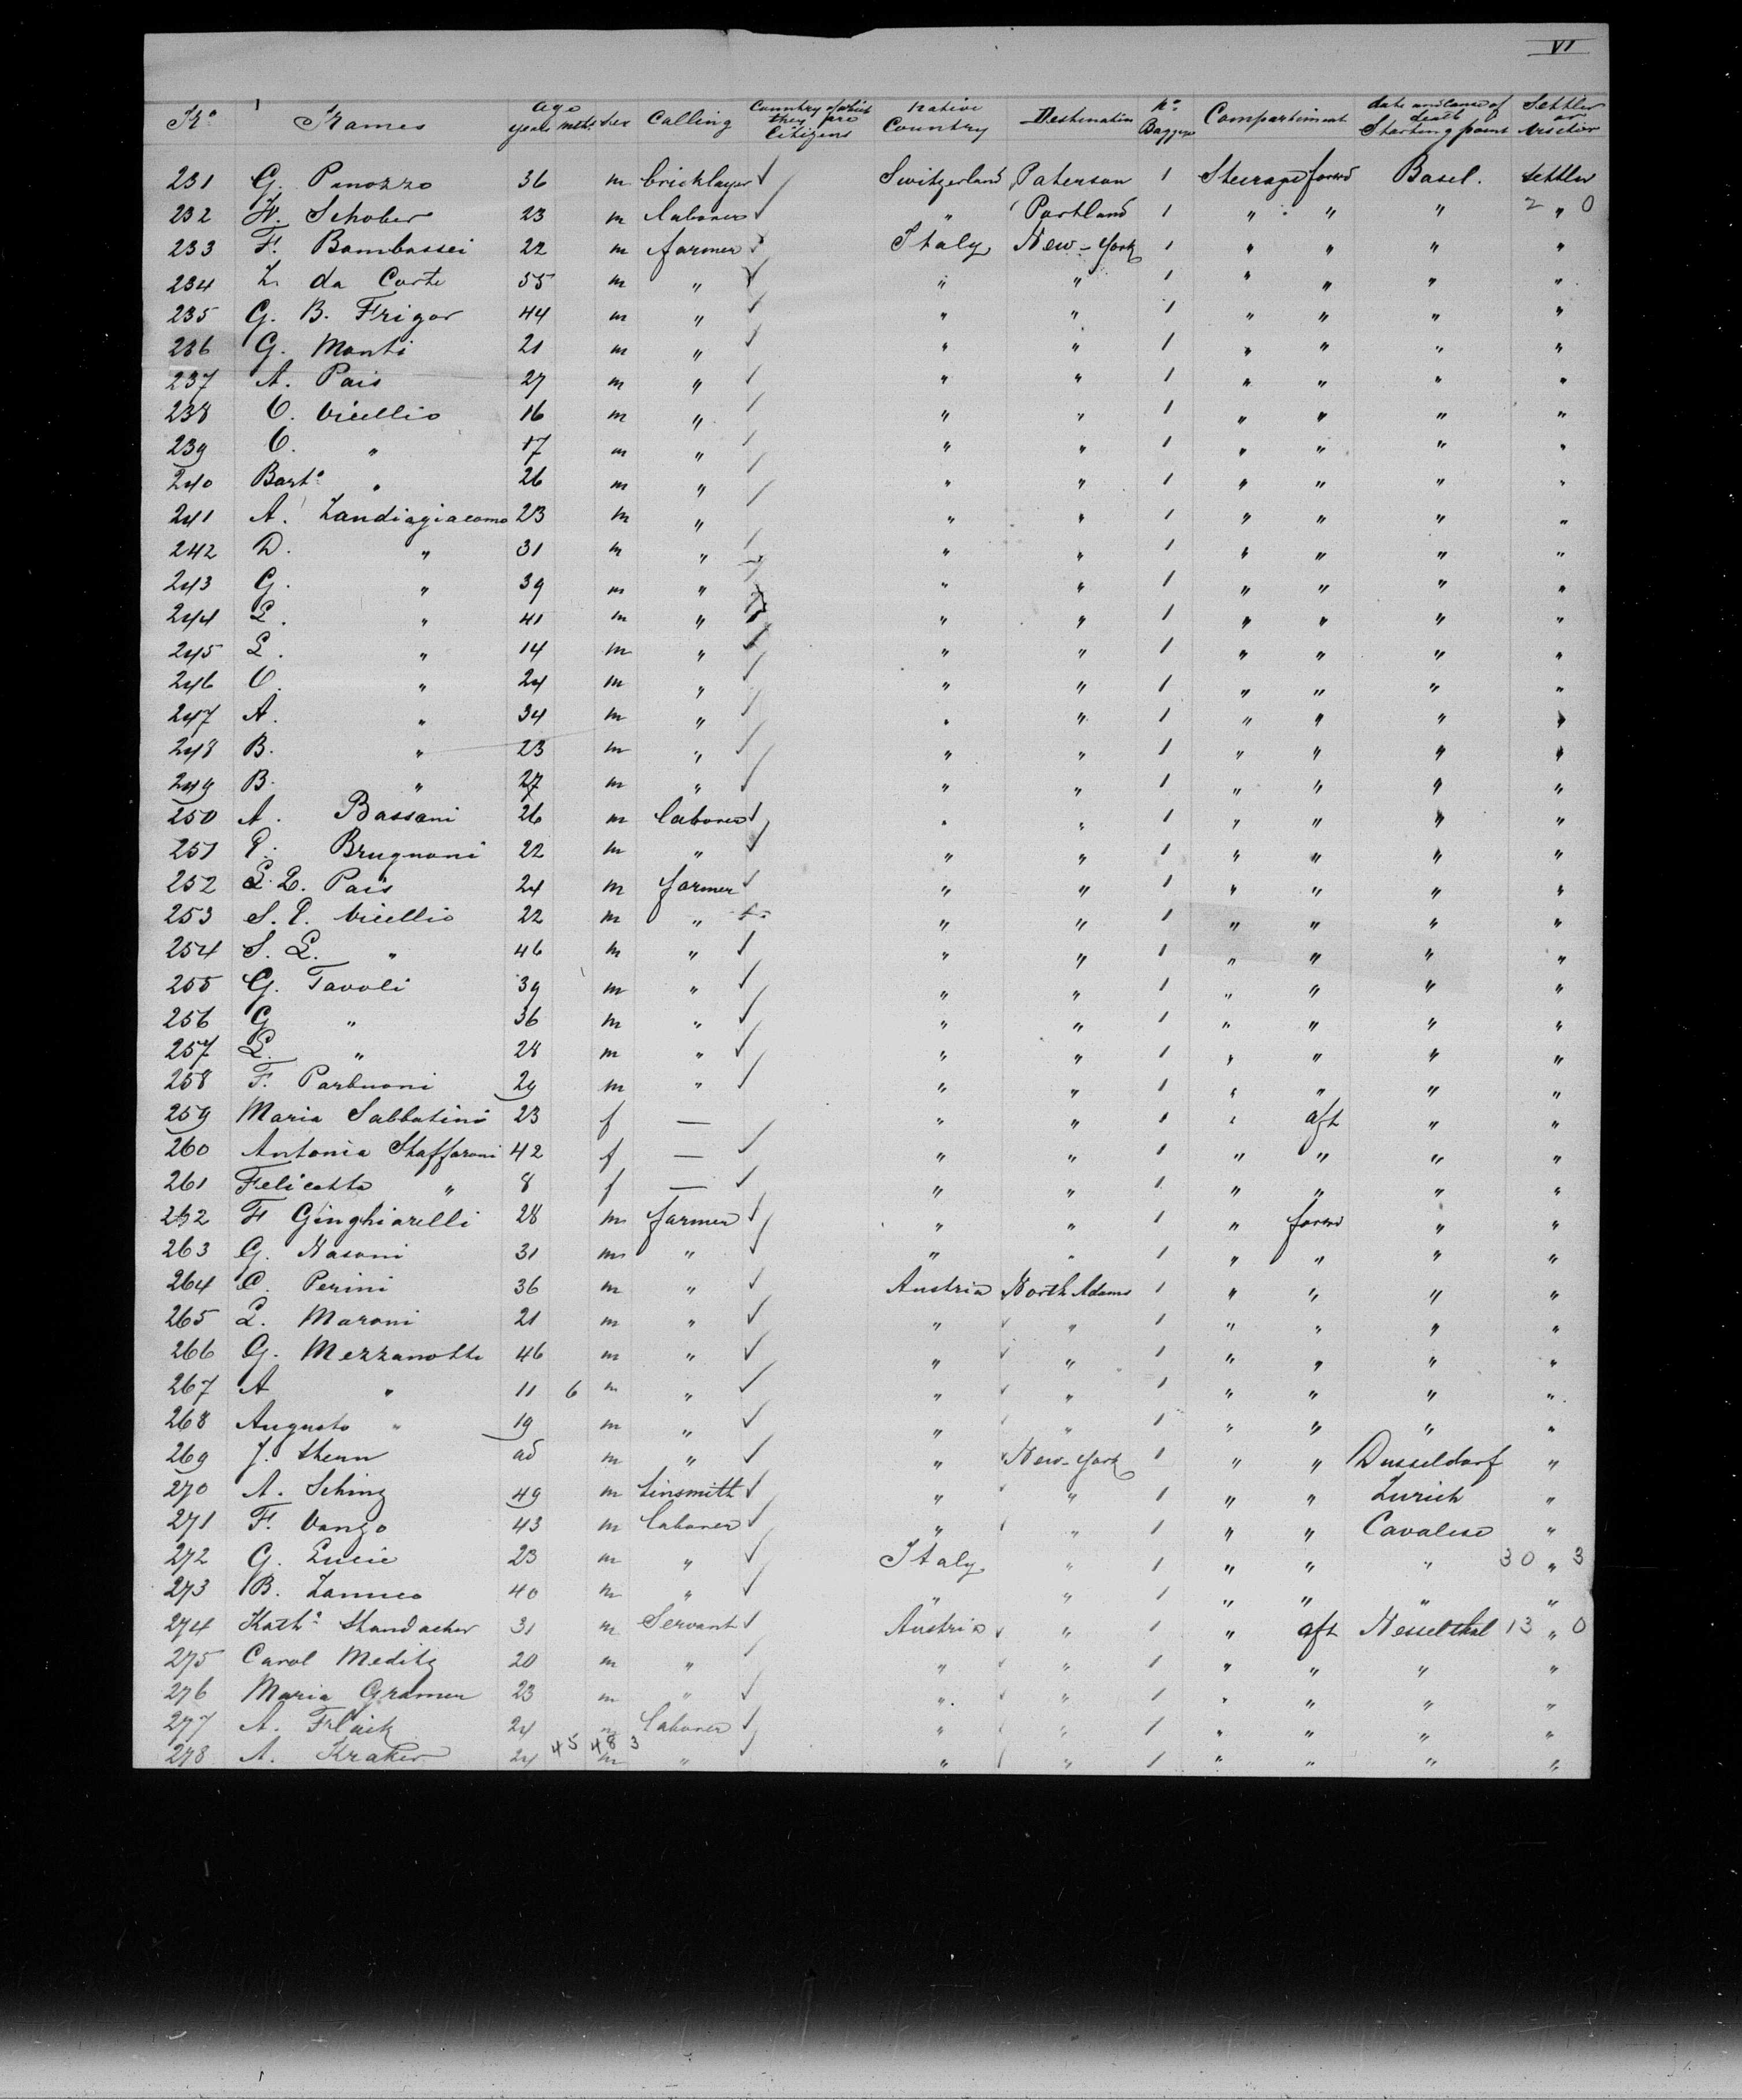 VI
No Names age years mths sex Calling Country of which they are Citizens Native Country Destination No Baggage Compartiment date and cause of death Starting point Settler or Visitor
231 G. Panozzo 36 m bricklayer ✓ Switzerland Paterson 1 Steerage forwd Basel. settler
232 F. Schober 23 m laborer ✓ " Portland 1 " " " 2 " 0
233 F. Bombassei 22 m farmer ✓ Italy New-York 1 " " " "
234 L. da Corte 55 m " ✓ " " 1 " " " "
235 G. B. Frigor 44 m " ✓ " " 1 " " " "
236 G. Monti 21 m " ✓ " " 1 " " " "
237 A. Pais 27 m " ✓ " " 1 " " " "
238 O. Vicellio 16 m " ✓ " " 1 " " " "
239 O. " 17 m " ✓ " " 1 " " " "
240 Barto " 26 m " ✓ " " 1 " " " "
241 A. Zandiagiacomo 23 m " ✓ " " 1 " " " "
242 D. " 31 m " ✓ " " 1 " " " "
243 G. " 39 m " ✓ " " 1 " " " "
244 L. " 41 m " ✓ " " 1 " " " "
245 L. " 14 m " ✓ " " 1 " " " "
246 O. " 24 m " ✓ " " 1 " " " "
247 A. " 34 m " ✓ " " 1 " " " "
248 B. " 23 m " ✓ " " 1 " " " "
249 B. " 27 m " ✓ " " 1 " " " "
250 A. Bassani 26 m laborer ✓ " " 1 " " " "
251 P. Brugnoni 22 m " ✓ " " 1 " " " "
252 L. L. Pais 24 m farmer ✓ " " 1 " " " "
253 S. P. Vicellio 22 m " " " 1 " " " "
254 S. L. " 46 m " ✓ " " 1 " " " "
255 G. Tavoli 39 m " ✓ " " 1 " " " "
256 G " 36 m " ✓ " " 1 " " " "
257 L. " 28 m " ✓ " " 1 " " " "
258 F. Parbuoni 29 m " ✓ " " 1 " " " "
259 Maria Sabbatini 23 f — " " 1 " aft " "
260 Antonia Staffaroni 42 f — ✓ " " 1 " " " "
261 Felicetta " 8 f — ✓ " " 1 " " " "
262 F Ginghiarelli 28 m farmer ✓ " " 1 " forwd " "
263 G. Nasoni 31 m " ✓ " " 1 " " " "
264 C. Perini 36 m " ✓ Austria North Adams 1 " " " "
265 L. Maroni 21 m " ✓ " " 1 " " " "
266 G. Mezzanotte 46 m " ✓ " " 1 " " " "
267 A " 11 6 m " ✓ " " 1 " " " "
268 Augusto " 19 m " ✓ " " 1 " " " "
269 J. ad m " ✓ " New-York 1 " " Dusseldorf "
270 A. Sching 49 m tinsmith ✓ " " 1 " " Zurich "
271 F. Vanzo 43 m laborer ✓ " " 1 " " Cavalese "
272 G. Lucie 23 m " ✓ Italy " 1 " " " 30 " 3
273 B. 40 m " ✓ " " 1 " " " "
274 Katha Standacher 31 m Servant ✓ Austria " 1 " aft Nesselthal 13 " 0
275 Carol Meditz 20 m " ✓ " " 1 " " " "
276 Maria Gramer 23 m " ✓ " " 1 " " " "
277 A. 24 m laborer ✓ " " 1 " " " "
45 48 3
278 A. Kraker 24 m " ✓ " " 1 " " " "